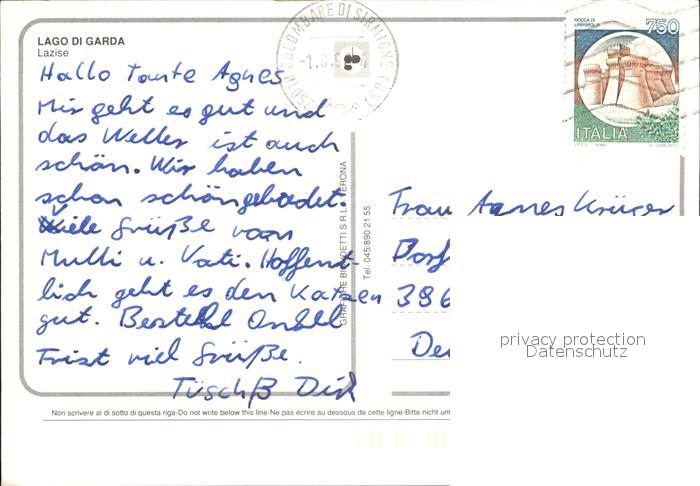 LAGO DI GARDA
Lazise
Hallo Tante Agnes
Mir geht es gut und
das Wetter ist auch
schön. Wir haben
schon schön gebadet.
Viele Grüße von
Mutti u. Vati. Hoffent-
lich geht es den Katzen
gut. Bestell Onkel
Frist viel Grüße.
Tüschß Dirk
GRAFICHE BIONDETTI S.R.L. VERONA
Tel. 045/890 21 55
COLOMBARE DI SIRMIONE
ROCCA DI URBISAGLIA
750
ITALIA
I.P.Z.S. - ROMA
Frau Agnes Krüger
Dorf
386
De
privacy protection
Datenschutz
Non scrivere al di sotto di questa riga-Do not write below this line-Ne pas écrire au dessous de cette ligne-Bitte nicht unt